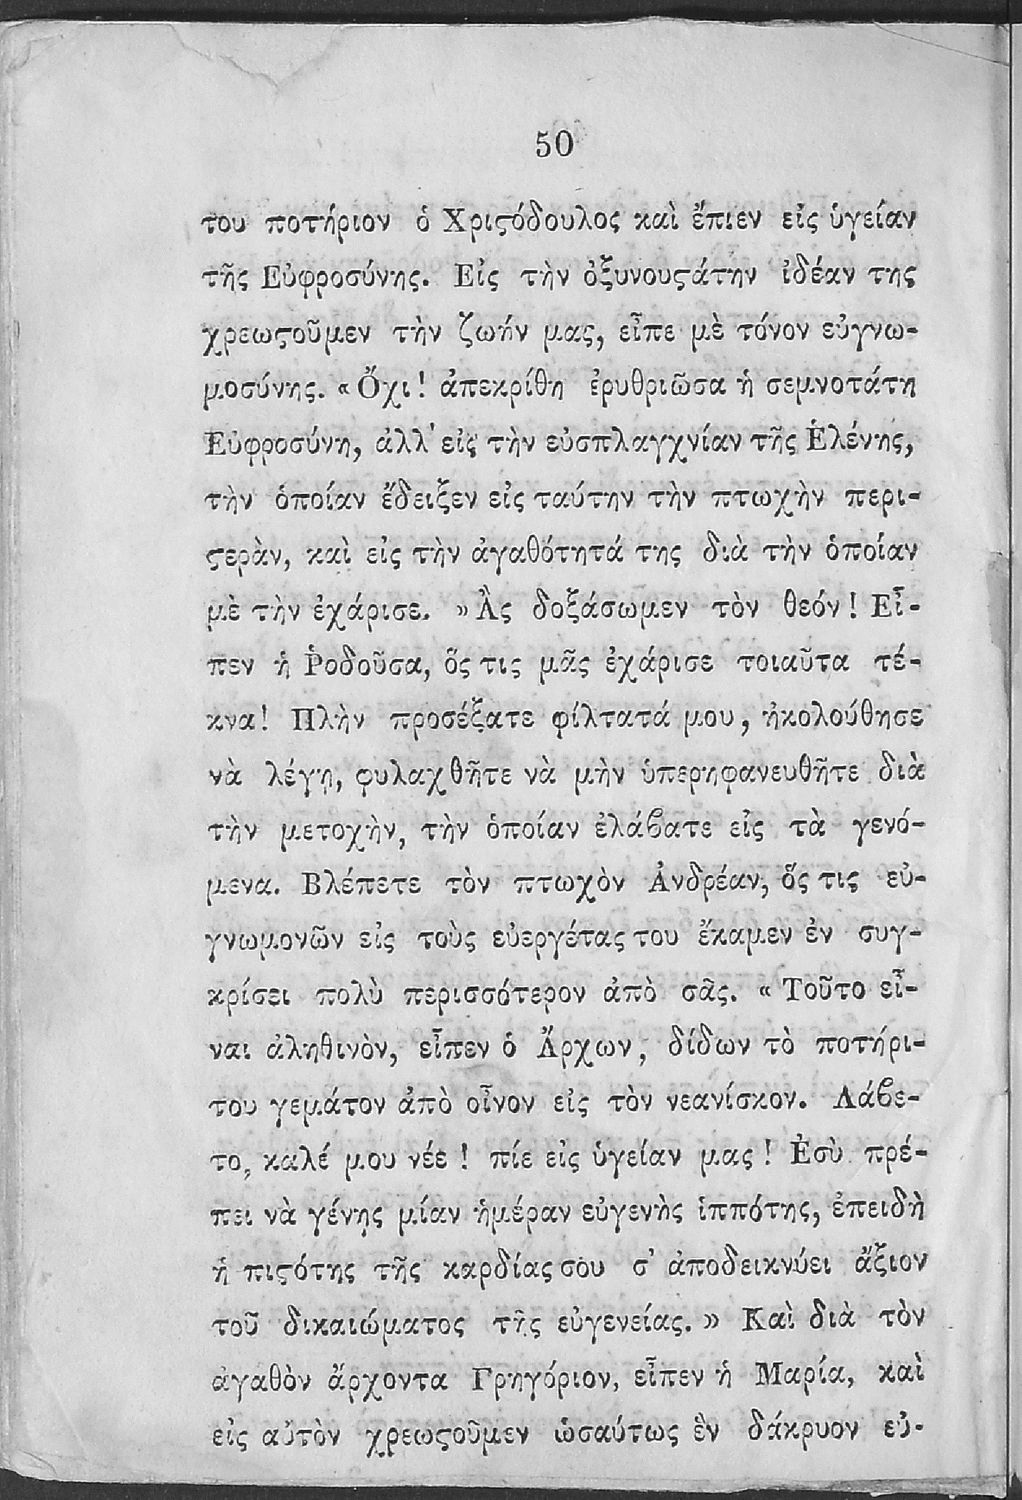 50
του ποτήριον ὁ Χριϛόδουλος καὶ ἔπιεν εἰς ὑγείαν
τῆς Εὐφροσύνης. Εἰς τὴν ὀξυνουϛάτην ἰδέαν της
χρεωϛοῦμεν τὴν ζωήν μας, εἶπε μὲ τόνον εὐγνω-
μοσύνης. « Ὄχι! ἀπεκρίθη ἐρυθριῶσα ἡ σεμνοτάτη
Εὐφροσύνη, ἀλλ᾽ εἰς τὴν εὐσπλαγχνίαν τῆς Ἑλένης,
τὴν ὁποίαν ἔδειξεν εἰς ταύτην τὴν πτωχὴν περι-
ϛερὰν, καὶ εἰς τὴν ἀγαθότητά της διὰ τὴν ὁποίαν
μὲ τὴν ἐχάρισε. » Ἂς δοξάσωμεν τὸν θεόν! Εἶ-
πεν ἡ Ῥοδοῦσα, ὅς τις μᾶς ἐχάρισε τοιαῦτα τέ-
κνα! Πλὴν προσέξατε φίλτατά μου, ἠκολούθησε
νὰ λέγῃ, φυλαχθῆτε νὰ μὴν ὑπερηφανευθῆτε διὰ
τὴν μετοχὴν, τὴν ὁποίαν ἐλάϐατε εἰς τὰ γενό-
μενα. Βλέπετε τὸν πτωχὸν Ἀνδρέαν, ὅς τις εὐ-
γνωμονῶν εἰς τοὺς εὐεργέτας του ἔκαμεν ἐν συγ-
κρίσει πολὺ περισσότερον ἀπὸ σᾶς. « Τοῦτο εἶ-
ναι ἀληθινὸν, εἶπεν ὁ Ἄρχων, δίδων τὸ ποτήρι-
του γεμάτον ἀπὸ οἶνον εἰς τὸν νεανίσκον. Λάϐε-
το, καλέ μου νέε! πίε εἰς ὑγείαν μας! Ἐσὺ πρέ-
πει νὰ γένῃς μίαν ἡμέραν εὐγενὴς ἱππότης, ἐπειδὴ
ἡ πιϛότης τῆς καρδίας σου σ᾽ ἀποδεικνύει ἄξιον
τοῦ δικαιώματος τῆς εὐγενείας. » Καὶ διὰ τὸν
ἀγαθὸν ἄρχοντα Γρηγόριον, εἶπεν ἡ Μαρία, καὶ
εἰς αὐτὸν χρεωϛοῦμεν ὡσαύτως ἓν δάκρυον εὐ-